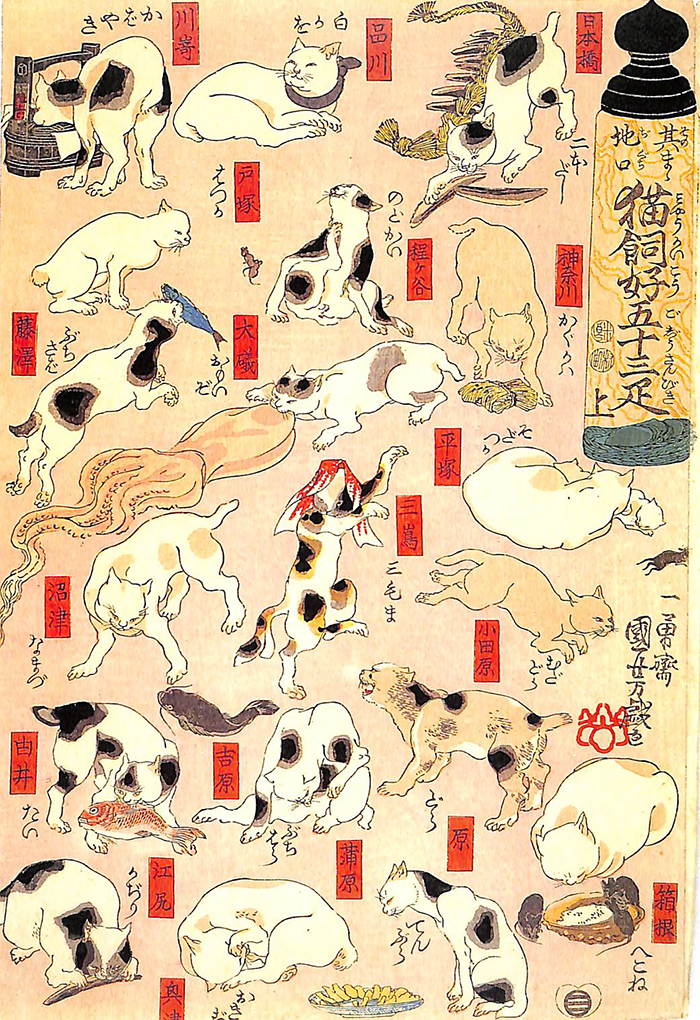 其まゝ
そのまゝ
地口
ぢぐち
猫飼好五十三疋
みやうかいこうごじうさんびき
上
日本橋
二本だし
品川
白かを
川嵜
かばやき
神奈川
かぐかハ
程ヶ谷
のどかい
戸塚
はつか
藤澤
ぶちさば
平塚
そだつか
大磯
おもいぞ
小田原
むだどら
箱根
へこね
三嶌
三毛ま
沼津
なまづ
原
どら
吉原
ぶちはら
蒲原
てんぷら
由井
たい
江尻
かぢり
奥津
一勇齋
國芳万戯画